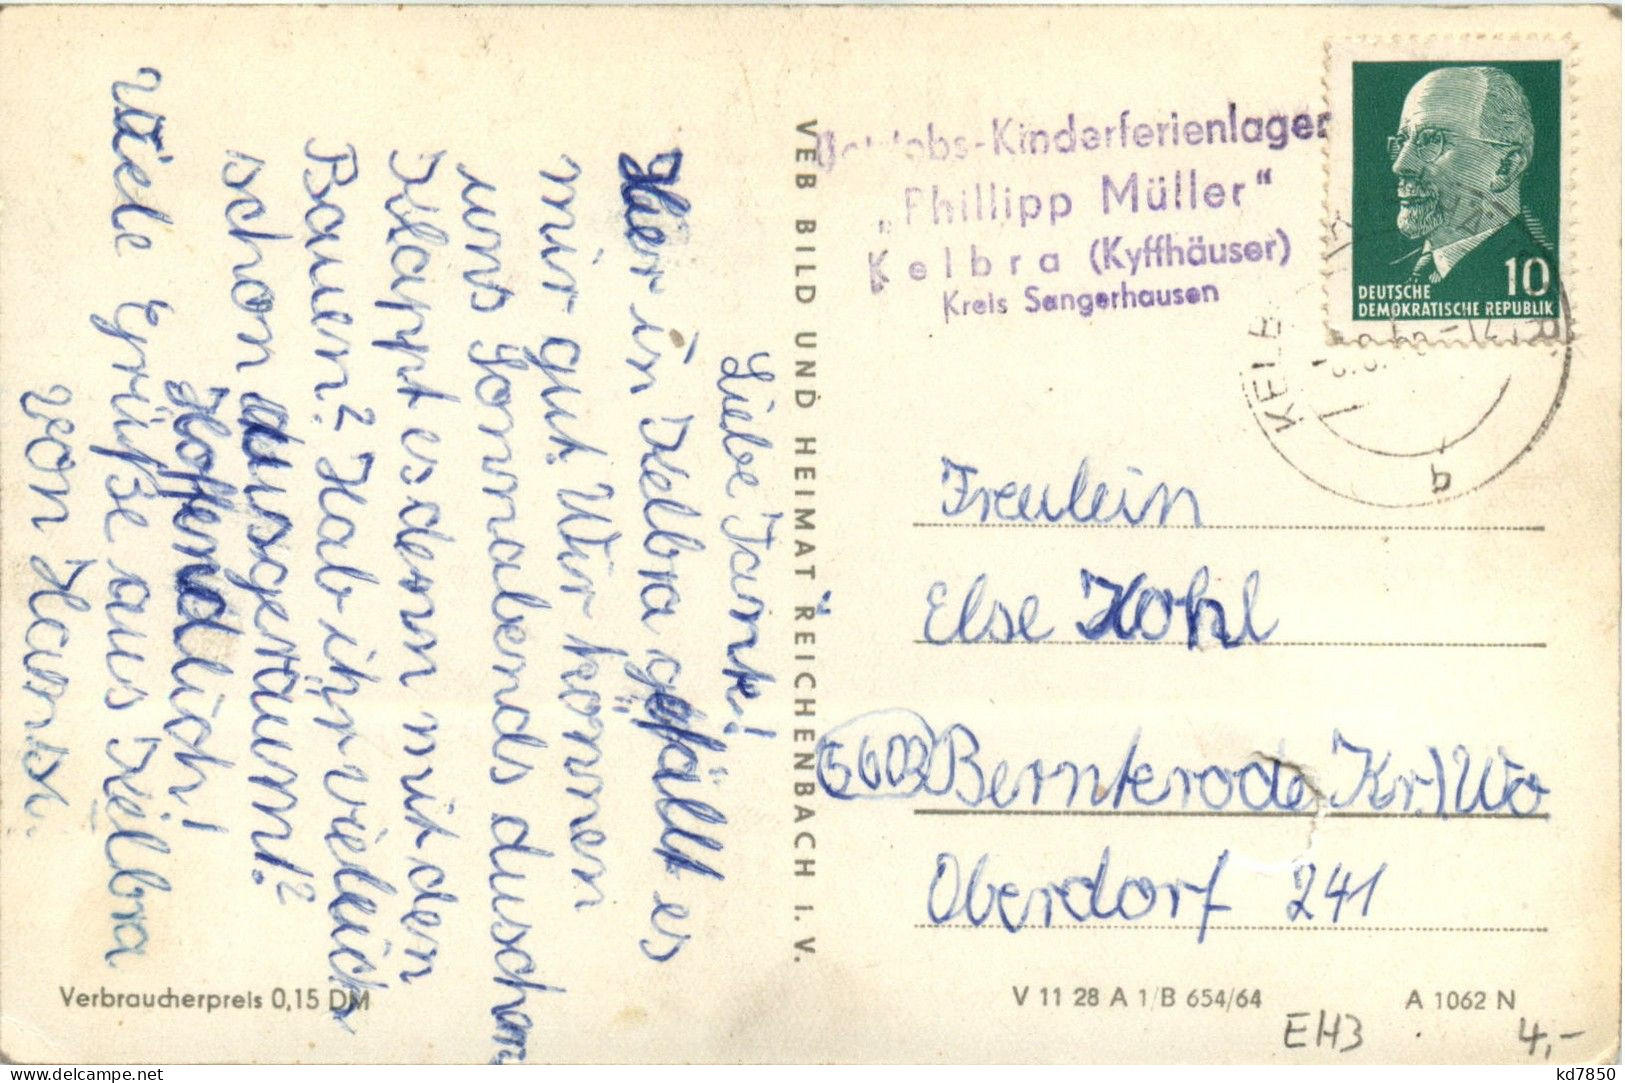 Liebe Tank!
Hier in Kelbra gefällt es
mir gut. Wir können
uns Sonnabends duschen
Klappt es denn mit den
Bauen? Hab ihr vieleich
schon ausgeräumt?
Hoffendlich!
Viele Grüße aus Kelbra
von
VEB BILD UND HEIMAT REICHENBACH I. V.
Betriebs-Kinderferienlager
„Phillipp Müller“
Kelbra (Kyffhäuser)
Kreis Sangerhausen
10
DEUTSCHE
DEMOKRATISCHE REPUBLIK
b
Freulein
Else Kohl
5603 Bernterode Kr./Wo
Oberdorf 241
Verbraucherpreis 0,15 DM
V 11 28 A 1/B 654/64
A 1062 N
EH3
4,-
kd7850